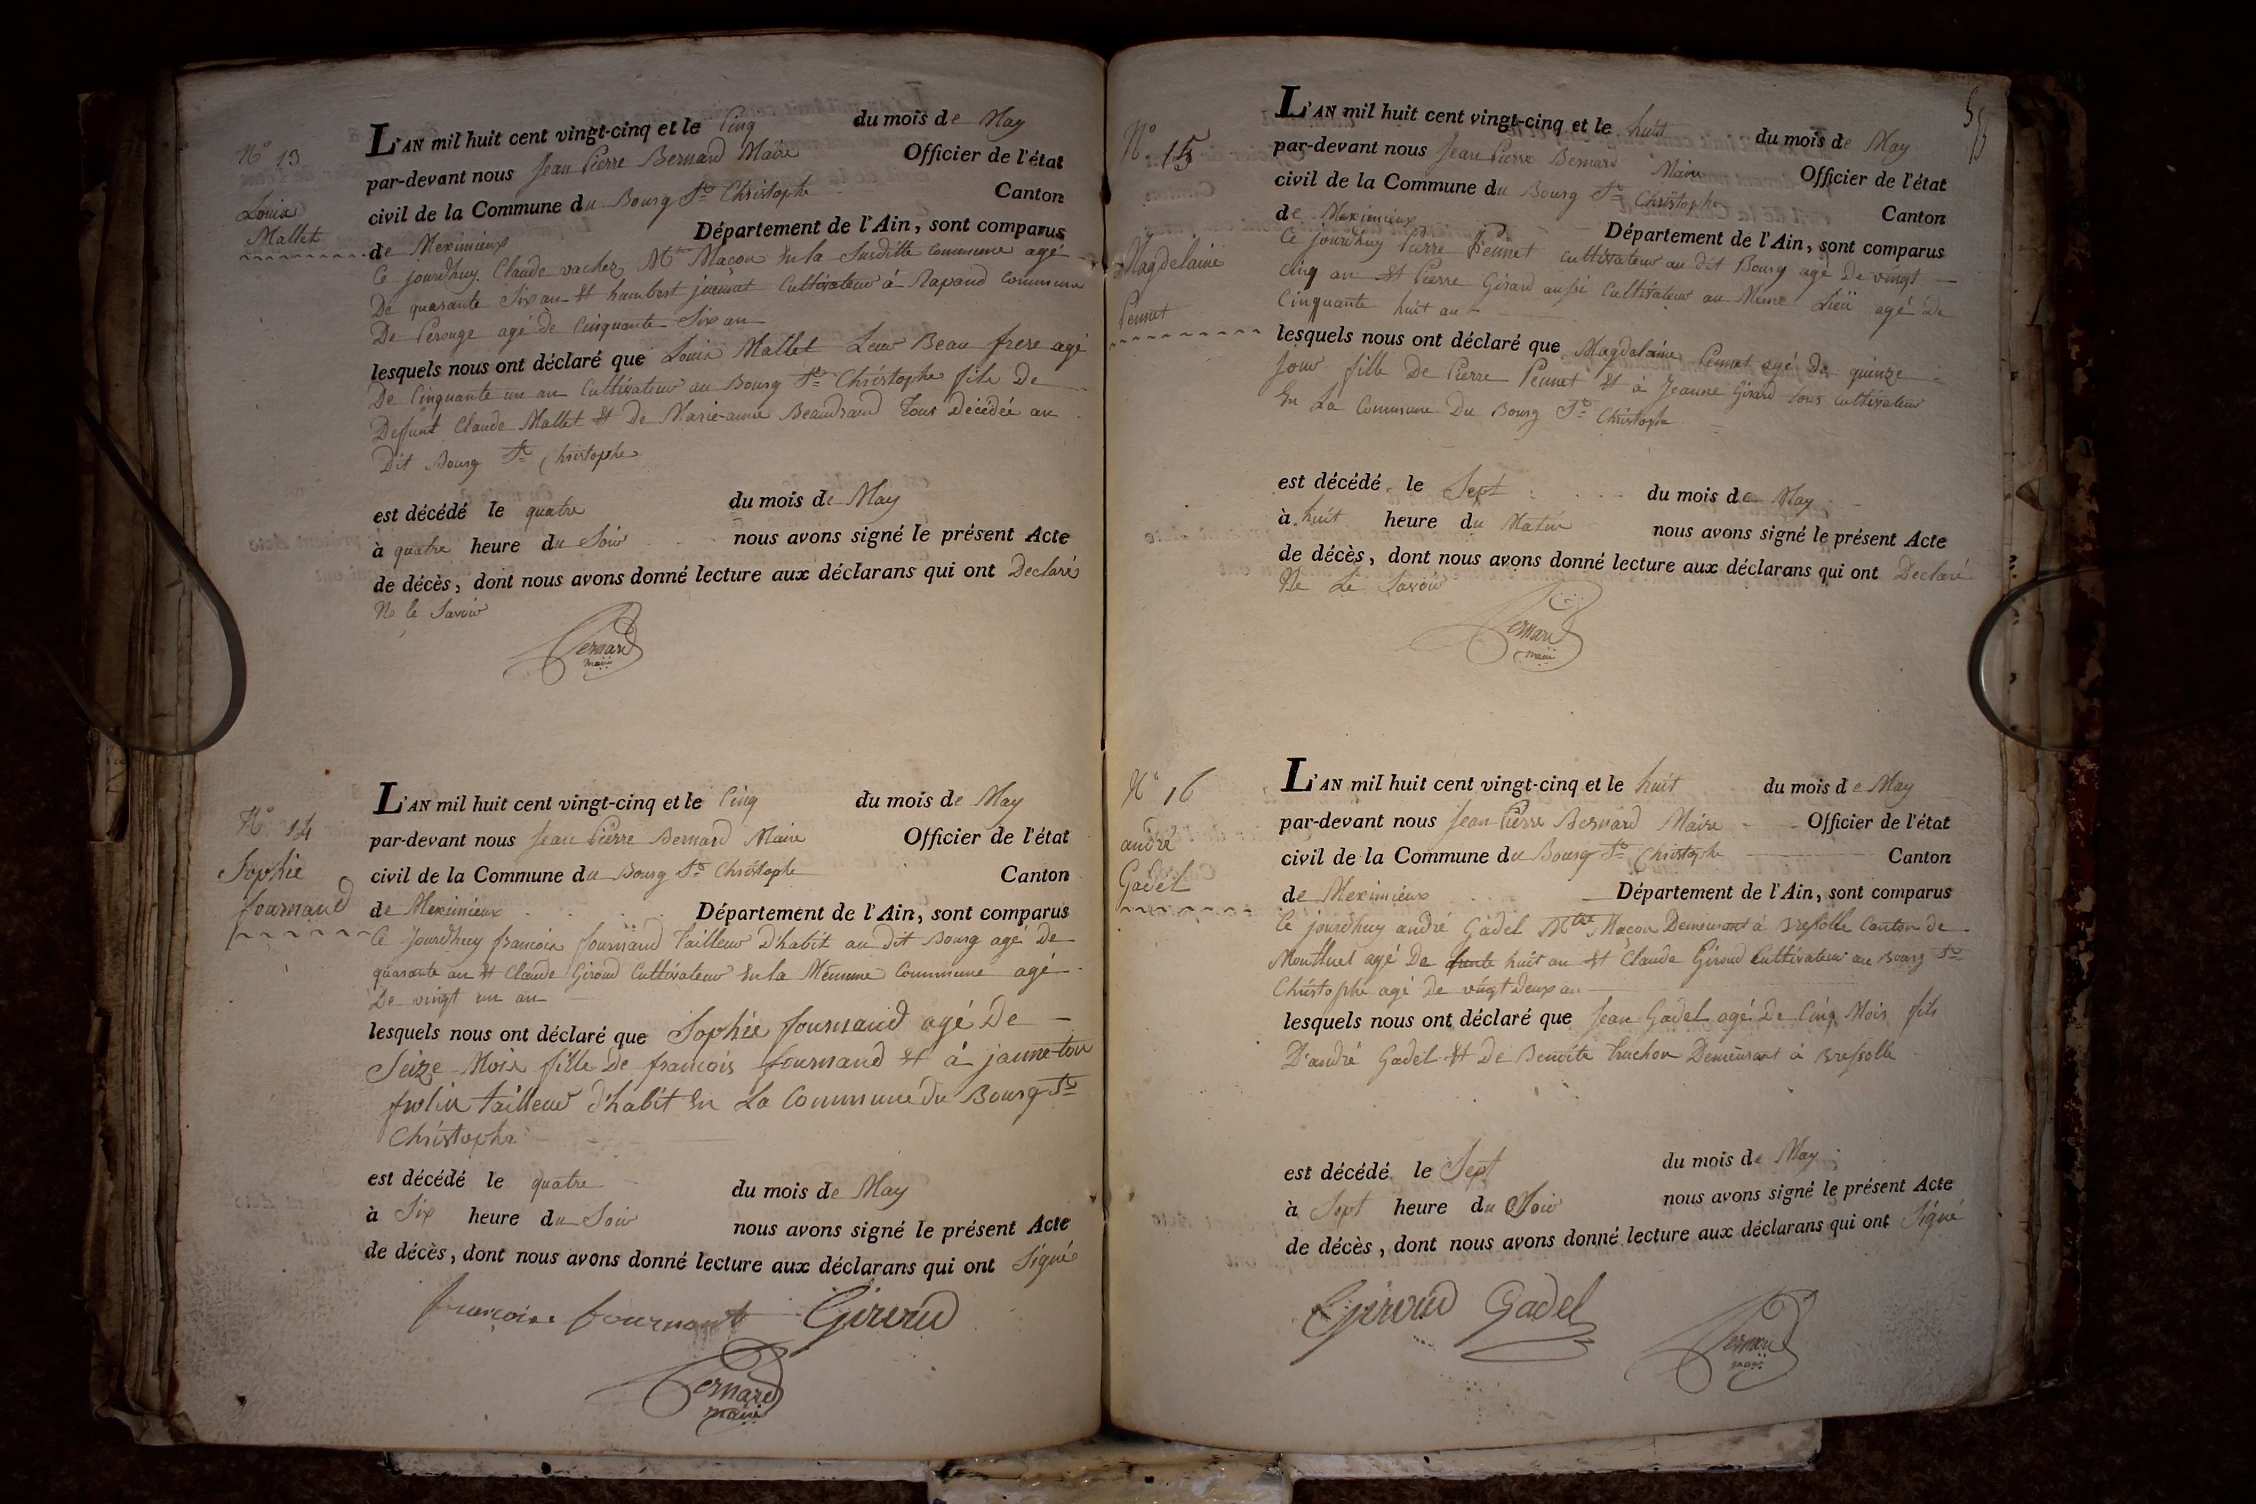 N° 13
Louis
Mallet
L'AN mil huit cent vingt-cinq et le Cinq du mois de May
par-devant nous Jean Pierre Bernard Maire Officier de l'état
civil de la Commune du Bourg St Christophe Canton
de Meximieux Département de l'Ain, sont comparus
Ce jourdhuy Claude vachez Mtre Macon En la Suditte Commune agé
De quarante Six an et humbert Cultivateur á Rapand Commune
De Perouge agé de Cinquante Six an
lesquels nous ont déclaré que Louis Mallet Leur Beau frere agé
De Cinquante un an Cultivateur au Bourg St Christophe fils De
Deffunt Claude Mallet et De Marie-anne Beaudrand Tous Décédée au
Dit Bourg St Christophe
est décédé le quatre du mois de May
à quatre heure du Soir nous avons signé le présent Acte
de décès, dont nous avons donné lecture aux déclarans qui ont Declaré
Ne le Savoir
Bernard
maire
N° 14
Sophie
fournand
L'AN mil huit cent vingt-cinq et le Cinq du mois de May
par-devant nous Jean Pierre Bernard Maire Officier de l'état
civil de la Commune du Bourg St Christophe Canton
de Meximieux Département de l'Ain, sont comparus
Ce jourdhuy francois fournand Tailleur D'habit au dit Bourg agé De
quarante an et Claude Giroud Cultivateur En la Mêmme Commune agé
De vingt un an
lesquels nous ont déclaré que Sophie fournand agé De
Seize Mois fille De francois fournand et á janneton
tailleur d'habit En La Commune du Bourg St
Christophe
est décédé le quatre du mois de May
à Six heure du Soir nous avons signé le présent Acte
de décès, dont nous avons donné lecture aux déclarans qui ont Signé
francois fournand Giroud
Bernard
maire
55
N° 15
Magdelaine
Pennet
L'AN mil huit cent vingt-cinq et le huit du mois de May
par-devant nous Jean Pierre Bernard Maire Officier de l'état
civil de la Commune du Bourg St Christophe Canton
de Meximieux Département de l'Ain, sont comparus
Ce jourdhuy Pierre Pennet cultivateur au dit Bourg agé De vingt
Cinq an et Pierre Girard aussi Cultivateur au Même Lieu agé De
Cinquante huit an
lesquels nous ont déclaré que Magdelaine Pennet agé De quinze
Jour fille De Pierre Pennet et á Jeanne Girard tous Cultivateur
En La Commune Du Bourg St Christophe
est décédé le Sept du mois de May
à huit heure du Matin nous avons signé le présent Acte
de décès, dont nous avons donné lecture aux déclarans qui ont Declaré
Ne Le Savoir
Bernard
maire
N° 16
andré
Gadel
L'AN mil huit cent vingt-cinq et le huit du mois de May
par-devant nous Jean Pierre Bernard Maire Officier de l'état
civil de la Commune du Bourg St Christophe Canton
de Meximieux Département de l'Ain, sont comparus
Ce jourdhuy andré Gadel Mtre Macon Demeurant á Bressolle Canton de
Montluel agé De trente huit an et Claude Giroud Cultivateur au Bourg St
Christophe agé De vingt Deux an
lesquels nous ont déclaré que Jean Gadel agé De Cinq Mois fils
D'andré Gadel et De Benoite Truchon Demeurant á Bressolle
est décédé le Sept du mois de May
à Sept heure du Soir nous avons signé le présent Acte
de décès, dont nous avons donné lecture aux déclarans qui ont Signé
Giroud Gadel
Bernard
maire